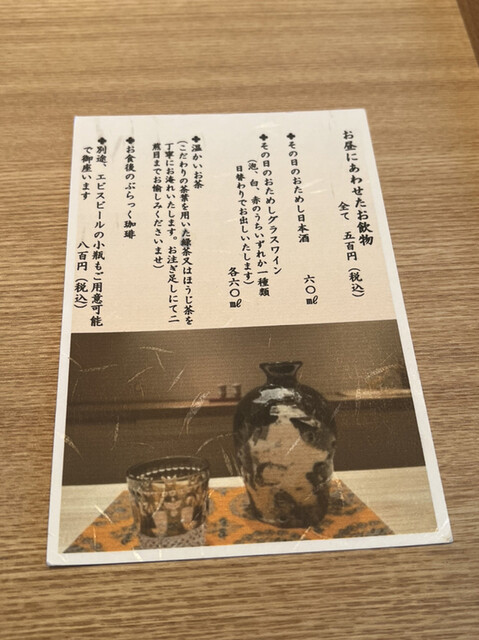 お昼にあわせたお飲物
全て　五百円（税込）
✤その日のおためし日本酒
六〇㎖
✤その日のおためしグラスワイン
（泡、白、赤のうちいずれか一種類
日替わりでお出しいたします）
各六〇㎖
✤温かいお茶
（こだわりの茶葉を用いた緑茶又はほうじ茶を
丁寧にお淹れいたします。お注ぎ足しにて二
煎目までお愉しみくださいませ）
✤お食後のぶらっく珈琲
✤別途、ヱビスビールの小瓶もご用意可能
で御座います　八百円（税込）